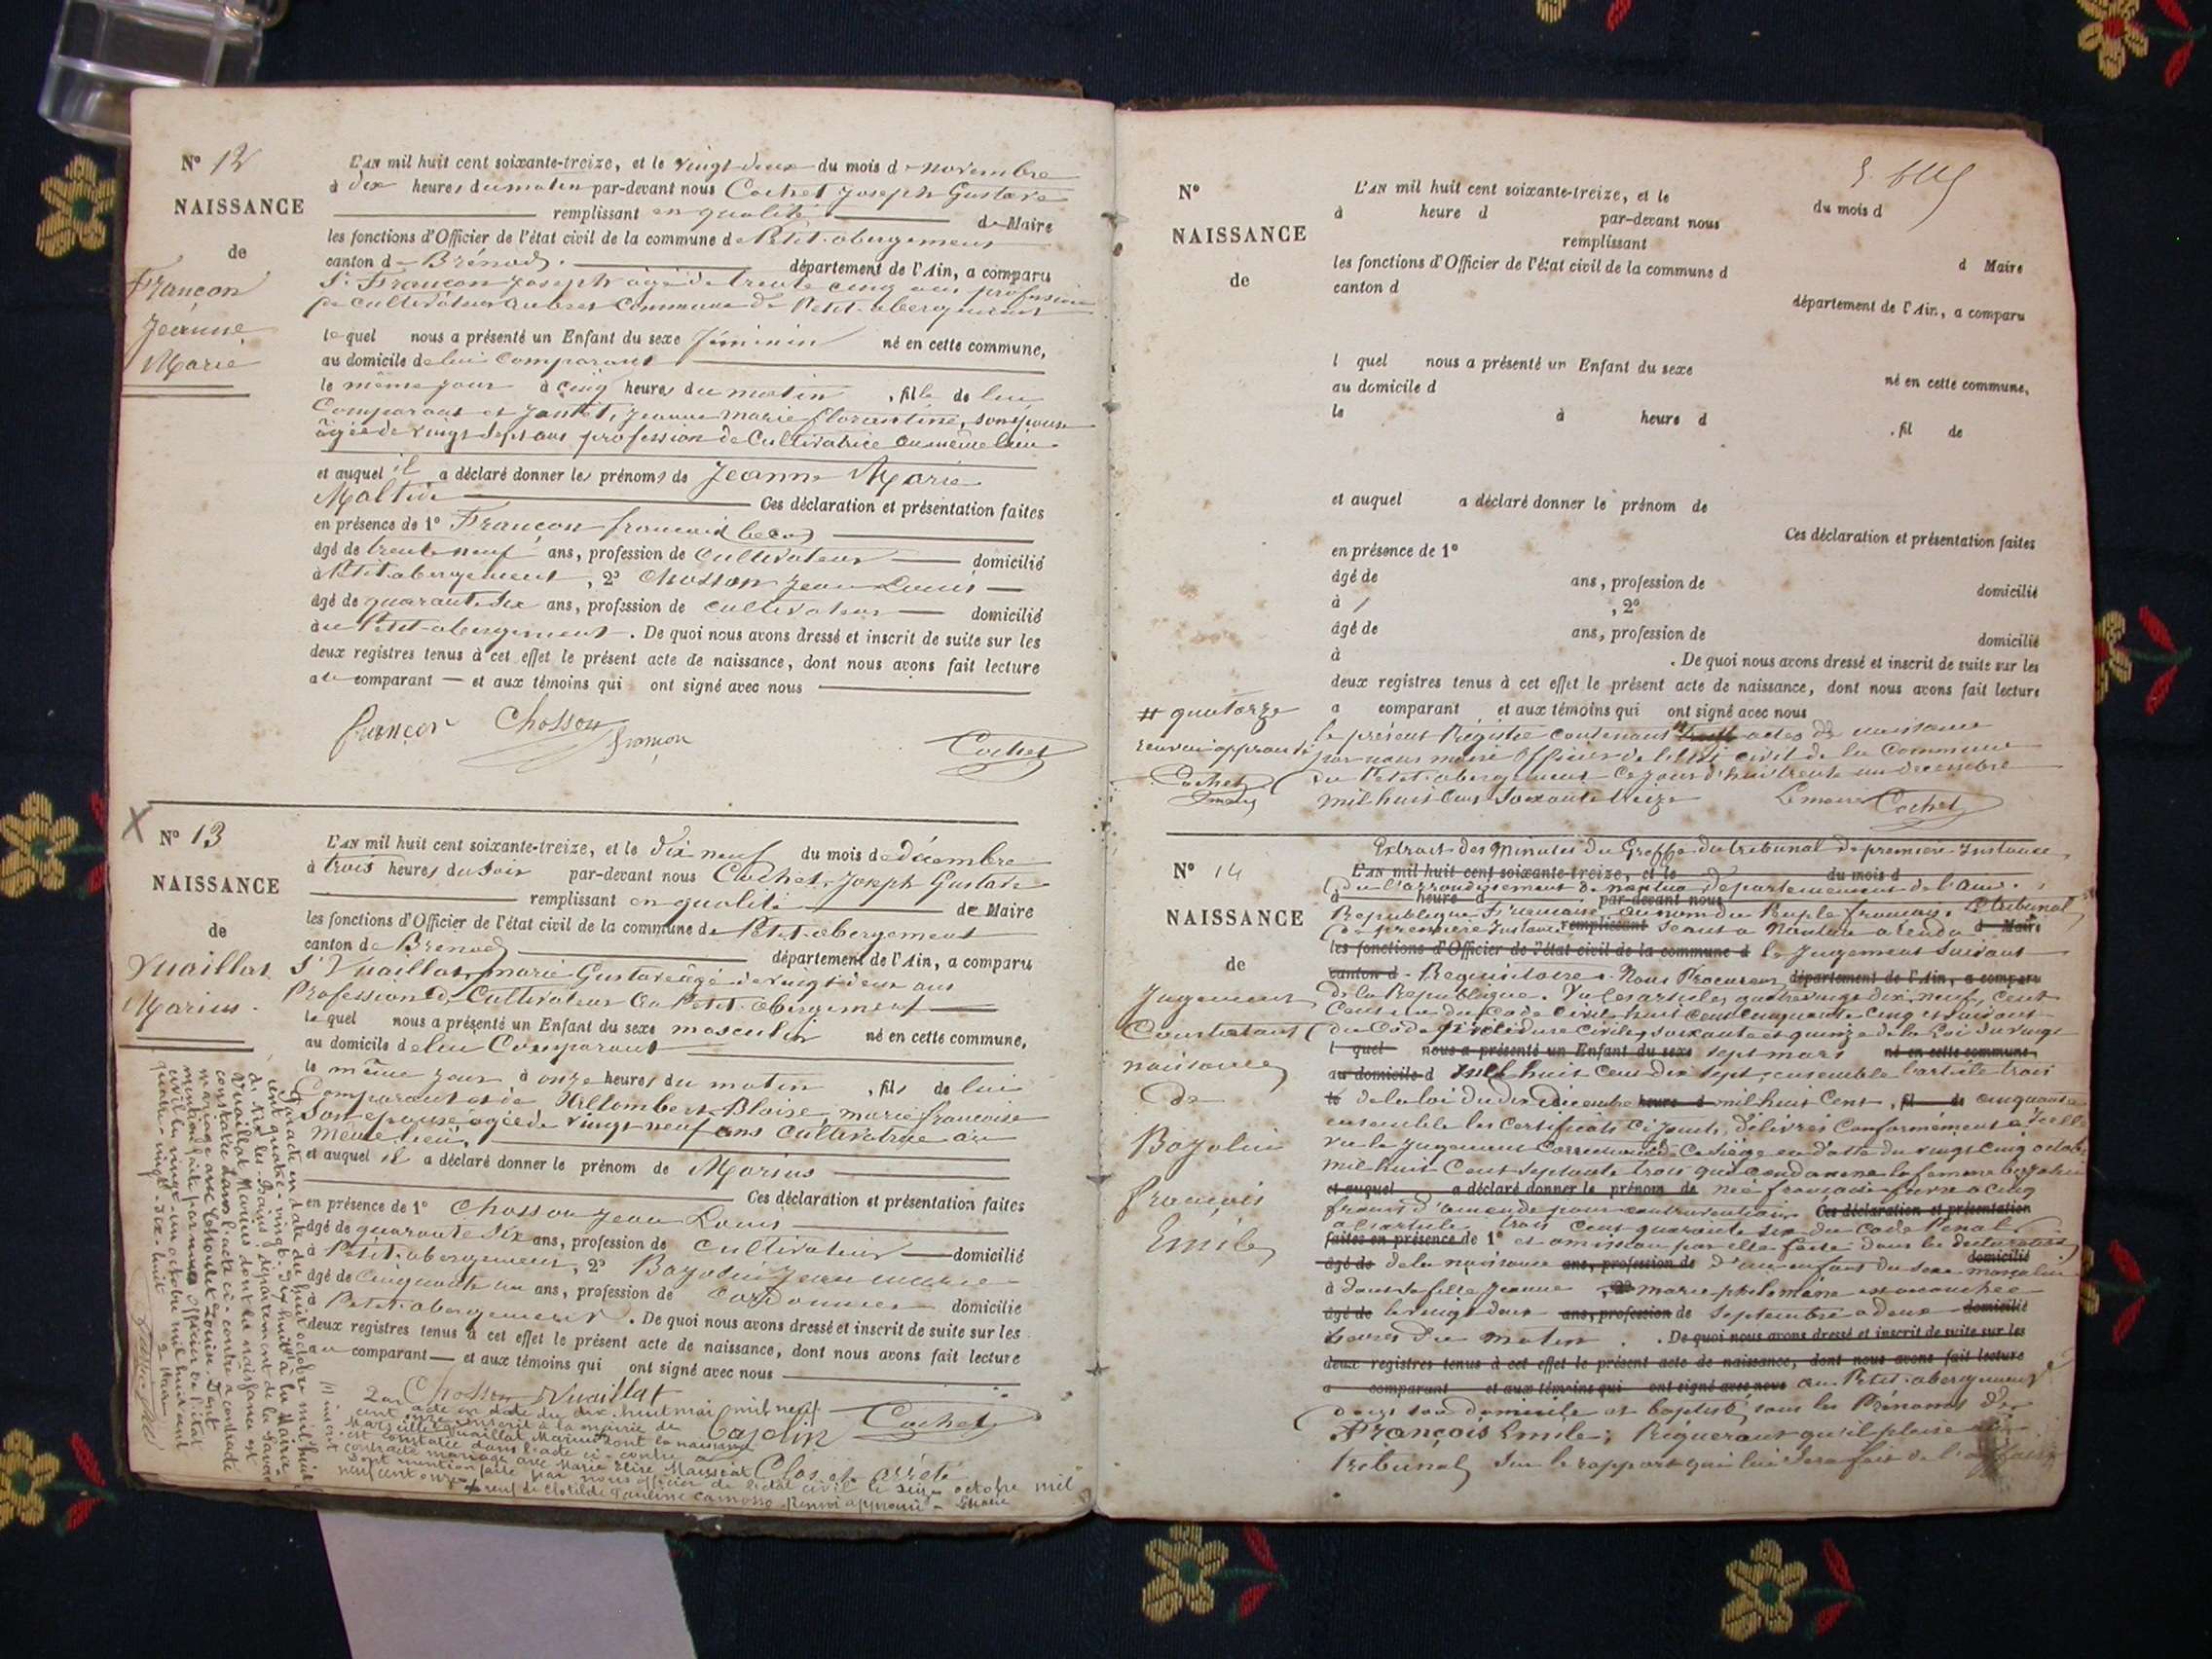 N° 12
NAISSANCE
de
Françon
Jeanne
Marie
L'AN mil huit cent soixante-treize, et le vingt deux du mois de novembre
à dix heures du matin par-devant nous Cochet Joseph Gustave
remplissant en qualité de Maire
les fonctions d'Officier de l'état civil de la commune de Petit-abergement
canton de Brénod département de l'Ain, a comparu
Sr Françon Joseph âgé de trente cinq ans profession
de cultivateur commune de Petit-abergement
lequel nous a présenté un Enfant du sexe féminin né en cette commune,
au domicile de lui Comparant
le même jour à cinq heures du matin, fille de lui
Comparant et Jeanne Marie florentine, son épouse
âgée de vingt sept ans profession de Cultivatrice au même lieu
et auquel il a déclaré donner les prénoms de Jeanne Marie
Ces déclaration et présentation faites
en présence de 1° Françon
âgé de trente neuf ans, profession de Cultivateur domicilié
à Petit abergement, 2° Chosson Jean Louis
âgé de quarante six ans, profession de cultivateur domicilié
au Petit-abergement. De quoi nous avons dressé et inscrit de suite sur les
deux registres tenus à cet effet le présent acte de naissance, dont nous avons fait lecture
au comparant et aux témoins qui ont signé avec nous
françon Chosson françon Cochet
X N° 13
NAISSANCE
de
Vuaillat
Marius
L'AN mil huit cent soixante-treize, et le dix neuf du mois de décembre
à trois heures du soir par-devant nous Cochet Joseph Gustave
remplissant en qualité de Maire
les fonctions d'Officier de l'état civil de la commune de Petit-abergement
canton de Brenod département de l'Ain, a comparu
Sr Vuaillat, marie Gustave âgé de vingt deux ans
Profession de Cultivateur au Petit-abergement
lequel nous a présenté un Enfant du sexe masculin né en cette commune,
au domicile de lui Comparant
le même jour à onze heures du matin, fils de lui
Comparant et de Blaise, marie françoise
Son épouse âgée de vingt neuf ans Cultivatrice au
même lieu,
et auquel il a déclaré donner le prénom de Marius
Ces déclaration et présentation faites
en présence de 1° Chosson Jean Louis
âgé de quarante six ans, profession de cultivateur domicilié
à Petit-abergement, 2° Bajolin Jean marie
âgé de cinquante un ans, profession de Cordonnier domicilié
à Petit-abergement. De quoi nous avons dressé et inscrit de suite sur les
deux registres tenus à cet effet le présent acte de naissance, dont nous avons fait lecture
au comparant et aux témoins qui ont signé avec nous
Chosson Vuaillat
bajolin Cochet
Par acte en date du dix huit mai mil neuf
cent onze inscrit à la mairie de
Marseille Vuaillat Marius dont la naissance
est constatée dans l'acte ci-contre a
contracté mariage avec Marie
Dont mention faite par nous officier de l'état civil le seize octobre mil
neuf cent onze
Clos et arrêté
veuf de Clotilde Pauline Renvoi approuvé
Par acte en date du huit octobre mil huit
cent quatre-vingt-dix-huit à la Mairie
d'Aix-les-Bains, département de la Savoie
Vuaillat Marius dont la naissance est
constatée dans l'acte ci-contre a contracté
mariage avec Louise. Dont
mention faite par nous Officier de l'état
civil le vingt-un octobre mil huit cent
quatre-vingt-dix-huit
N°
NAISSANCE
de
L'AN mil huit cent soixante-treize, et le du mois d
à heure d par-devant nous
remplissant d Maire
les fonctions d'Officier de l'état civil de la commune d
canton d département de l'Ain, a comparu
l quel nous a présenté un Enfant du sexe né en cette commune,
au domicile d
le à heure d , fil de
et auquel a déclaré donner le prénom de
Ces déclaration et présentation faites
en présence de 1°
âgé de ans, profession de domicilié
à , 2°
âgé de ans, profession de domicilié
à . De quoi nous avons dressé et inscrit de suite sur les
deux registres tenus à cet effet le présent acte de naissance, dont nous avons fait lecture
a comparant et aux témoins qui ont signé avec nous
# quatorze
renvoi approuvé
Cochet
le présent Registre contenant # actes de naissance
par nous maire Officier de l'état civil de la Commune
du Petit-abergement ce jour d'hui trente un décembre
mil huit cent soixante treize Le maire Cochet
N° 14
NAISSANCE
de
Jugement
Constatant
naissance
de
Bajolin
François
Emile
Extrait des Minutes du Greffe du tribunal de première Instance
L'AN mil huit cent soixante-treize, et le du mois d
de l'arrondissement de nantua département de l'ain.
à heure d par-devant nous
Republique Française au nom du Peuple français. Le tribunal
de première Instance remplissant séant à Nantua a rendu d Maire
les fonctions d'Officier de l'état civil de la commune d le Jugement Suivant
canton d Requisitoire. Nous Procureur département de l'Ain, a comparu
de la République. Vu les articles quatre vingt dix neuf, cent
du Code Civil huit cent cinquante cinq et suivants
du Code de Procédure Civile, soixante et quinze de la Loi du vingt
l quel nous a présenté un Enfant du sexe sept mars né en cette commune,
au domicile d mil huit cent dix sept, ensemble l'article trois
le de la loi du dix décembre heure d mil huit cent, fil de cinquante
ensemble les Certificats ci joints, délivrés Conformément à Icelle
vu le Jugement Correctionnel Ce Siège en date du vingt cinq octobre
mil huit Cent Septante trois qui condamne la femme bajolin
et auquel a déclaré donner le prénom de née françoise à cinq
francs d'amende pour contravention Ces déclaration et présentation
à l'article trois cent quarante six du Code Pénal
faites en présence de 1° et omission par elle faite dans la déclaration
âgé de de la naissance ans, profession de d'un enfant du sexe masculin domicilié
à dont sa fille Jeanne 2° marie philomène est accouchée
âgé de le vingt deux ans, profession de septembre à deux domicilié
heures du matin. De quoi nous avons dressé et inscrit de suite sur les
deux registres tenus à cet effet le présent acte de naissance, dont nous avons fait lecture
a comparant et aux témoins qui ont signé avec nous au Petit-abergement
dans son domicile et baptisé sous les Prénoms de
François Emile; Requérant qu'il plaise au
tribunal Sur le rapport qui lui sera fait de l'affaire